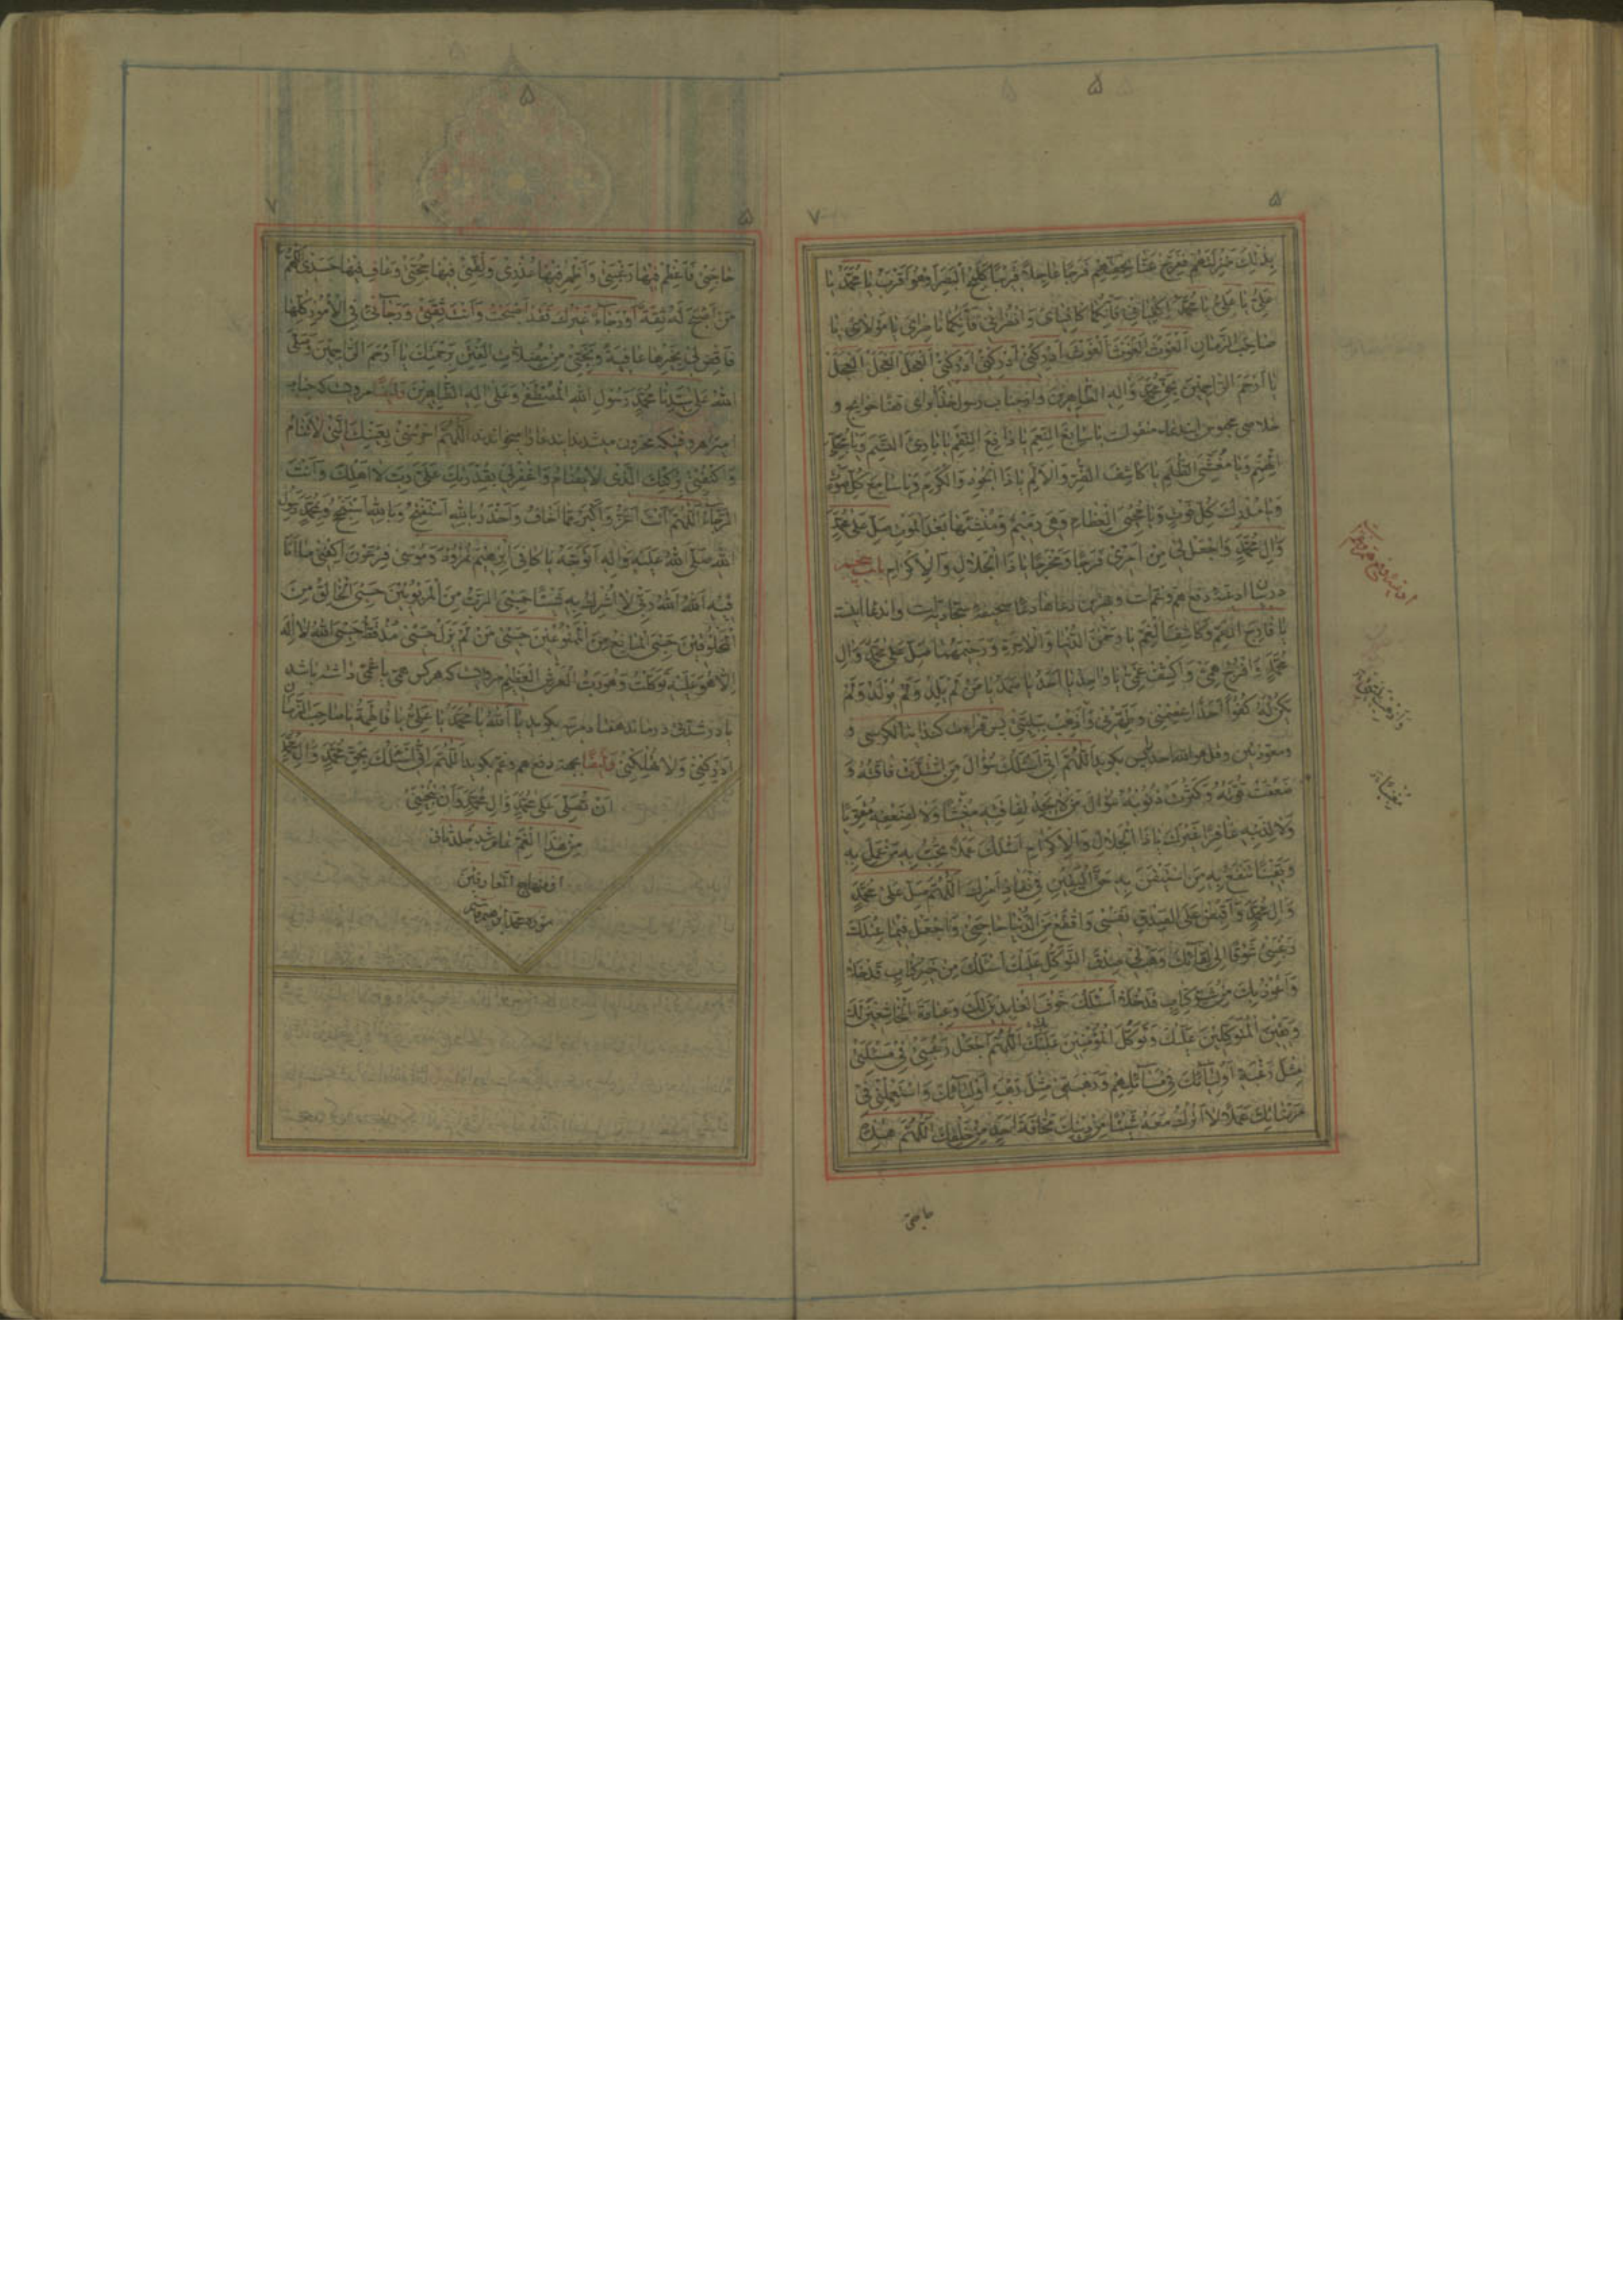 ۵
۵ ۷
بِذٰلِكَ عَنَّا بِحَقِّهِمْ فَرَجًا عَاجِلًا قَرِيبًا كَلَمْحِ الْبَصَرِ أَوْ هُوَ أَقْرَبُ يَا مُحَمَّدُ يَا
عَلِيُّ يَا عَلِيُّ يَا مُحَمَّدُ اِكْفِيَانِي فَإِنَّكُمَا كَافِيَايَ وَانْصُرَانِي فَإِنَّكُمَا نَاصِرَايَ يَا مَوْلَانَا يَا
صَاحِبَ الزَّمَانِ الْغَوْثَ الْغَوْثَ الْغَوْثَ أَدْرِكْنِي أَدْرِكْنِي أَدْرِكْنِي الْعَجَلَ الْعَجَلَ الْعَجَلَ
يَا أَرْحَمَ الرَّاحِمِينَ بِحَقِّ مُحَمَّدٍ وَآلِهِ الطَّاهِرِينَ و از جناب رسول خدا برای قضا حوایج و
خلاصی محبوس این دعاء منقولست يَا سَابِغَ النِّعَمِ يَا دَافِعَ النِّقَمِ يَا بَارِئَ النَّسَمِ وَيَا
الْهِمَمِ وَيَا مُغَشِّيَ الظُّلَمِ يَا كَاشِفَ الضُّرِّ وَالْأَلَمِ يَا ذَا الْجُودِ وَالْكَرَمِ وَيَا سَامِعَ كُلِّ صَوْتٍ
وَيَا مُدْرِكَ كُلِّ فَوْتٍ وَيَا مُحْيِيَ الْعِظَامِ وَهِيَ رَمِيمٌ وَمُنْشِئَهَا بَعْدَ الْمَوْتِ صَلِّ عَلَى مُحَمَّدٍ
وَآلِ مُحَمَّدٍ وَاجْعَلْ لِي مِنْ أَمْرِي فَرَجًا وَمَخْرَجًا يَا ذَا الْجَلَالِ وَالْإِكْرَامِ باب پنجم
در بیان ادعیهٔ دفع هم و غمست و بهترین دعاها دعاء صحیفهٔ سجادیّه است و اندعا اینست
يَا فَارِجَ الْهَمِّ وَكَاشِفَ الْغَمِّ يَا رَحْمٰنَ الدُّنْيَا وَالْآخِرَةِ وَرَحِيمَهُمَا صَلِّ عَلَى مُحَمَّدٍ وَآلِ
مُحَمَّدٍ وَافْرُجْ هَمِّي وَاكْشِفْ غَمِّي يَا وَاحِدُ يَا أَحَدُ يَا صَمَدُ يَا مَنْ لَمْ يَلِدْ وَلَمْ يُولَدْ وَلَمْ
يَكُنْ لَهُ كُفُوًا أَحَدٌ اعْصِمْنِي وَطَهِّرْنِي وَاذْهَبْ بِبَلِيَّتِي پس قرائت کند آیة الکرسی و
ومعوذتین و قل هو الله احد پس بگوید اَللّٰهُمَّ إِنِّي أَسْئَلُكَ سُؤَالَ مَنِ اشْتَدَّتْ فَاقَتُهُ وَ
ضَعُفَتْ قُوَّتُهُ وَكَثُرَتْ ذُنُوبُهُ سُؤَالَ مَنْ لَا يَجِدُ لِفَاقَتِهِ مُغِيثًا وَلَا لِضَعْفِهِ مُقَوِّيًا
وَلَا لِذَنْبِهِ غَافِرًا غَيْرَكَ يَا ذَا الْجَلَالِ وَالْإِكْرَامِ أَسْئَلُكَ عَمَلًا تُحِبُّ بِهِ مَنْ عَمِلَ بِهِ
وَيَقِينًا تَنْفَعُ بِهِ مَنِ اسْتَيْقَنَ بِهِ حَقَّ الْيَقِينِ فِي نَفَاذِ أَمْرِكَ اَللّٰهُمَّ صَلِّ عَلَى مُحَمَّدٍ
وَآلِ مُحَمَّدٍ وَاقْبِضْ عَلَى الصِّدْقِ نَفْسِي وَاقْطَعْ مِنَ الدُّنْيَا حَاجَتِي وَاجْعَلْ فِيمَا عِنْدَكَ
رَغْبَتِي شَوْقًا إِلَى لِقَائِكَ وَهَبْ لِي صِدْقَ التَّوَكُّلِ عَلَيْكَ أَسْئَلُكَ مِنْ خَيْرِ كِتَابٍ قَدْ خَلَا
وَأَعُوذُ بِكَ مِنْ شَرِّ كِتَابٍ قَدْ خَلَا أَسْئَلُكَ خَوْفَ الْعَابِدِينَ لَكَ وَعِبَادَةَ الْخَاشِعِينَ لَكَ
وَيَقِينَ الْمُتَوَكِّلِينَ عَلَيْكَ وَتَوَكُّلَ الْمُؤْمِنِينَ عَلَيْكَ اَللّٰهُمَّ اجْعَلْ رَغْبَتِي فِي مَسْئَلَتِي
مِثْلَ رَغْبَةِ أَوْلِيَائِكَ فِي مَسَائِلِهِمْ وَرَهْبَتِي مِثْلَ رَهْبَةِ أَوْلِيَائِكَ وَاسْتَعْمِلْنِي فِي
مَرْضَاتِكَ عَمَلًا لَا أَتْرُكُ مَعَهُ شَيْئًا مِنْ دِينِكَ مَخَافَةَ أَحَدٍ مِنْ خَلْقِكَ اَللّٰهُمَّ هٰذِهِ
حاجتی
۵
۵ ۷
حَاجَتِي فَأَعْظِمْ فِيهَا رَغْبَتِي وَأَظْهِرْ فِيهَا عُذْرِي وَلَقِّنِّي فِيهَا حُجَّتِي وَعَافِ فِيهَا جَسَدِي اَللّٰهُمَّ
مَنْ أَصْبَحَ لَهُ ثِقَةٌ أَوْ رَجَاءٌ غَيْرُكَ فَقَدْ أَصْبَحْتُ وَأَنْتَ ثِقَتِي وَرَجَائِي فِي الْأُمُورِ كُلِّهَا
فَاقْضِ لِي بِخَيْرِهَا عَاقِبَةً وَنَجِّنِي مِنْ مُضِلَّاتِ الْفِتَنِ بِرَحْمَتِكَ يَا أَرْحَمَ الرَّاحِمِينَ وَصَلَّى
اللهُ عَلَى سَيِّدِنَا مُحَمَّدٍ رَسُولِ اللهِ الْمُصْطَفَى وَعَلَى آلِهِ الطَّاهِرِينَ وایضا مرویست که جناب
امیر هر وقتیکه محزون میشدند ایندعا را میخواندند اَللّٰهُمَّ احْرُسْنِي بِعَيْنِكَ الَّتِي لَا تَنَامُ
وَاكْنُفْنِي بِرُكْنِكَ الَّذِي لَا يُضَامُ وَاغْفِرْ لِي بِقُدْرَتِكَ عَلَيَّ رَبِّ لَا أَهْلِكُ وَأَنْتَ
الرَّجَاءُ اَللّٰهُمَّ أَنْتَ أَعَزُّ وَأَكْبَرُ مِمَّا أَخَافُ وَأَحْذَرُ بِاللهِ أَسْتَفْتِحُ وَبِاللهِ أَسْتَنْجِحُ وَبِمُحَمَّدٍ رَسُولِ
اللهِ صَلَّى اللهُ عَلَيْهِ وَآلِهِ أَتَوَجَّهُ يَا كَافِيَ إِبْرٰهِيمَ نُمْرُودَ وَمُوسَى فِرْعَوْنَ اكْفِنِي مَا أَنَا
فِيهِ اَللهُ اَللهُ رَبِّي لَا أُشْرِكُ بِهِ شَيْئًا حَسْبِيَ الرَّبُّ مِنَ الْمَرْبُوبِينَ حَسْبِيَ الْخَالِقُ مِنَ
الْمَخْلُوقِينَ حَسْبِيَ الْمَانِعُ مِنَ الْمَمْنُوعِينَ حَسْبِي مَنْ لَمْ يَزَلْ حَسْبِي مُذْ قَطُّ حَسْبِيَ اللهُ لَا إِلٰهَ
إِلَّا هُوَ عَلَيْهِ تَوَكَّلْتُ وَهُوَ رَبُّ الْعَرْشِ الْعَظِيمِ مرویست که هر کس همّی یا غمّی داشته باشد
یا در شدتی درماند هفتاد مرتبه بگوید يَا اَللهُ يَا مُحَمَّدُ يَا عَلِيُّ يَا فَاطِمَةُ يَا صَاحِبَ الزَّمَانِ
أَدْرِكْنِي وَلَا تُهْلِكْنِي وایضا بجهة دفع هم و غم بگوید اَللّٰهُمَّ إِنِّي أَسْئَلُكَ بِحَقِّ مُحَمَّدٍ وَآلِ مُحَمَّدٍ
أَنْ تُصَلِّيَ عَلَى مُحَمَّدٍ وَآلِ مُحَمَّدٍ وَأَنْ تُنْجِيَنِي
مِنْ هٰذَا الْغَمِّ تمام شد جلد ثانی
از منهاج العارفین